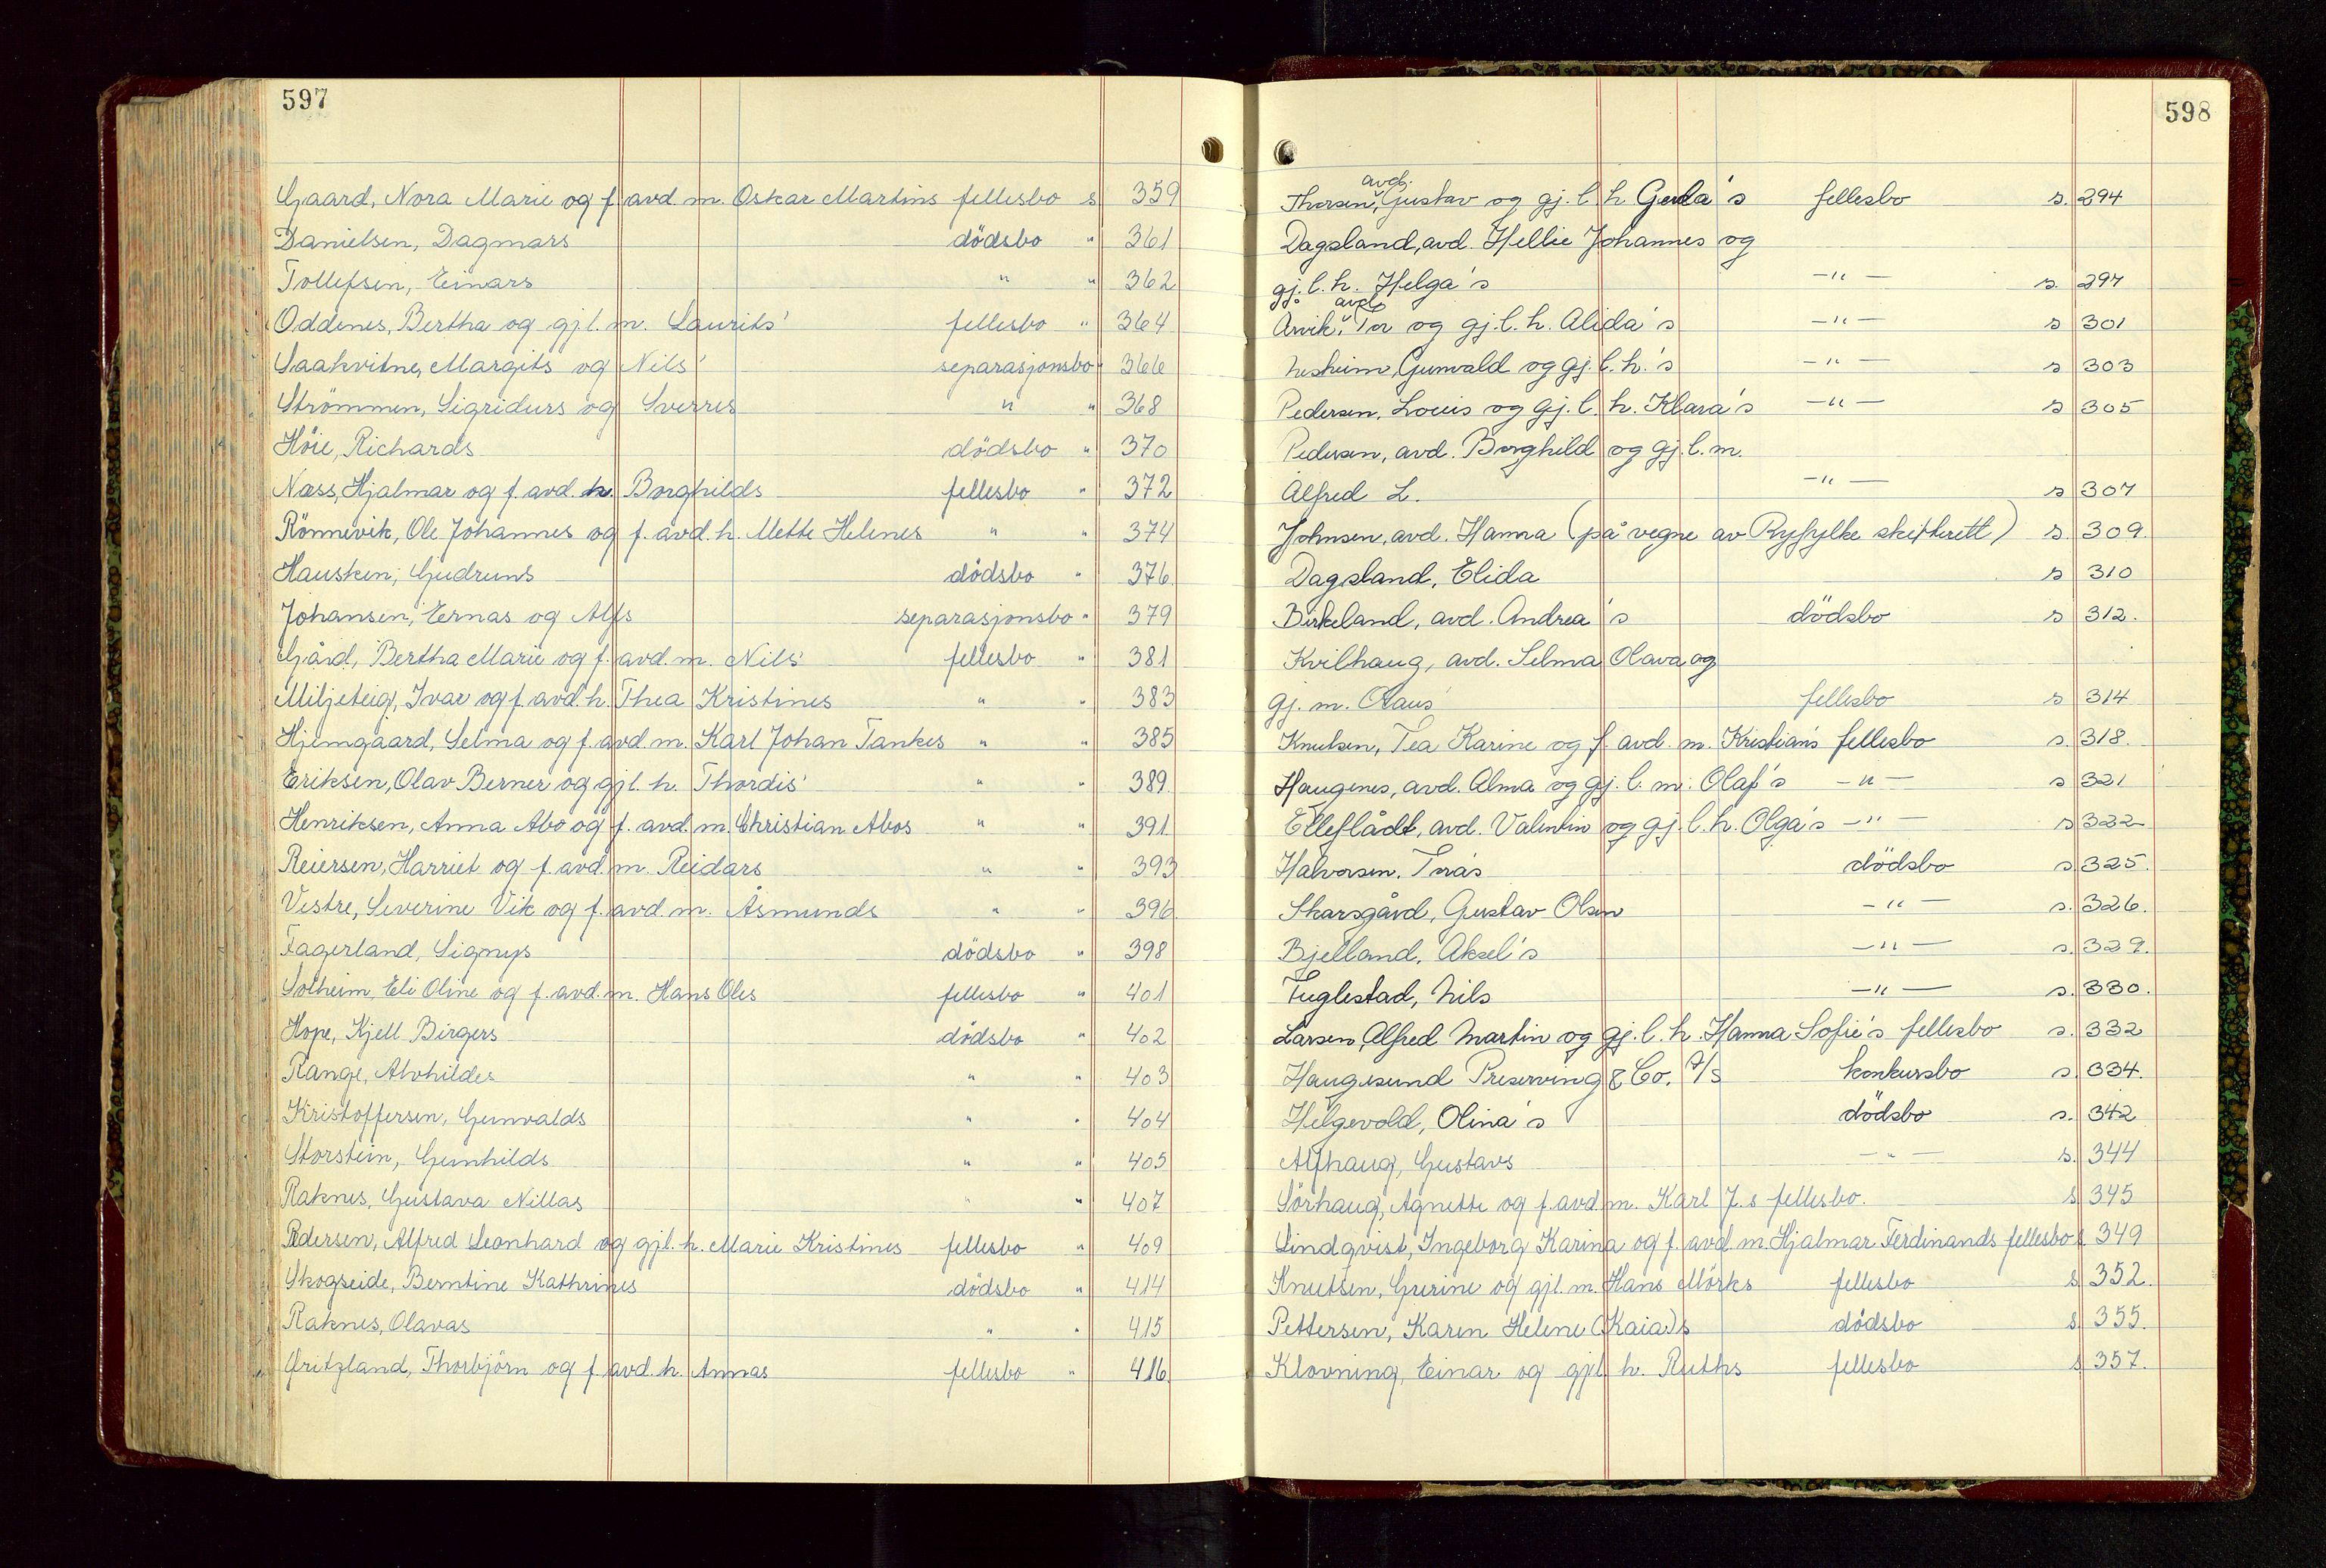 597
Gaard, Nora Marie og f. avd. m. Oskar Martins fellesbo s 359
Danielsen, Dagmars dödsbo " 361
Tollefsen, Einars " " 362
Oddenes, Bertha og gjl. m. Laurits' fellesbo " 364
Saakvitne, Margits og Nils' separasjonsbo " 366
Strömmen, Sigridurs og Sverres " " 368
Höie, Richards dödsbo " 370
Næss, Hjalmar og f. avd. h. Borghilds fellesbo " 372
Rönnevik, Ole Johannes og f. avd. h. Mette Helenes " " 374
Hausken, Gudruns dödsbo " 376.
Johansen, Ernas og Alfs separasjonsbo " 379
Gård, Bertha Marie og f. avd. m. Nils' fellesbo " 381
Miljeteig, Ivar og f. avd. h. Thea Kristines " " 383
Hjemgaard, Selma og f. avd. m. Karl Johan Tankes " " 385
Eriksen, Olav Berner og gjl. h. Thordis' " " 389.
Henriksen, Anna Abo og f. avd. m. Christian Abos " " 391.
Reiersen, Harriet og f. avd. m. Reidars " " 393
Vestre, Severine Vik og f. avd. m. Åsmunds " " 396.
Fagerland, Signys dödsbo " 398
Solheim, Eli Oline og f. avd. m. Hans Oles fellesbo " 401
Hope, Kjell Birgers dödsbo " 402
Range, Alvhildes " " 403
Kristoffersen, Gunvalds " " 404
Storstein, Gunhilds " " 405
Raknes, Gustava Nillas " " 407
Pedersen, Alfred Leonhard og gjl. h. Marie Kristines fellesbo " 409
Skogseide, Berntine Kathrines dödsbo " 414
Raknes, Olavas " " 415
Fritzland, Thorbjörn og f. avd. h. Annas fellesbo " 416.
598
avd.
Thorsen, Gustav og gj. l. h. Gerda's fellesbo s. 294
Dagsland, avd. Hellie Johannes og
gj. l. h. Helga's -"- s. 297
avd.
Arvik, Tor og gj. l. h. Alida's -"- s 301
Nesheim, Gunvald og gj. l. h.'s -"- s 303
Pedersen, Louis og gj. l. h. Klara's -"- s 305
Pedersen, avd. Borghild og gj. l. m.
Alfred L. -"- s 307
Johnsen, avd. Hanna (på vegne av Ryfylke skifterett) s. 309.
Dagsland, Elida s 310
Birkeland, avd. Andrea's dödsbo s 312.
Kvilhaug, avd. Selma Olava og
gj. m. Olaus' fellesbo s 314
Knutsen, Tea Karine og f. avd. m. Kristian's fellesbo s. 318.
Haugenes, avd. Alma og gj. l. m. Olaf's -"- s 321
Elleflådt, avd. Valentin og gj. l. h. Olga's -"- s 322
Halvorsen, Tora's dödsbo s. 325.
Skarsgård, Gustav Olsen -"- s. 326.
Bjelland, Aksel's -"- s. 329.
Fuglestad, Nils -"- s. 330.
Larsen, Alfred Martin og gj. l. h. Hanna Sofie's fellesbo s. 332
Haugesund Preserving & Co. A/s konkursbo s. 334.
Helgevold, Olina's dödsbo s. 342
Alfhaug, Gustavs -"- s. 344
Sörhaug, Agnette og f. avd. m. Karl J.s fellesbo. s 345
Lindqvist, Ingeborg Karina og f. avd. m. Hjalmar Ferdinands fellesbo s 349
Knutsen, Grerine og gjl. m. Hans Mörks fellesbo s 352.
Pettersen, Karen Helene (Kaia)s dödsbo s 355.
Klovning, Einar og gjl. h. Ruths fellesbo s 357.